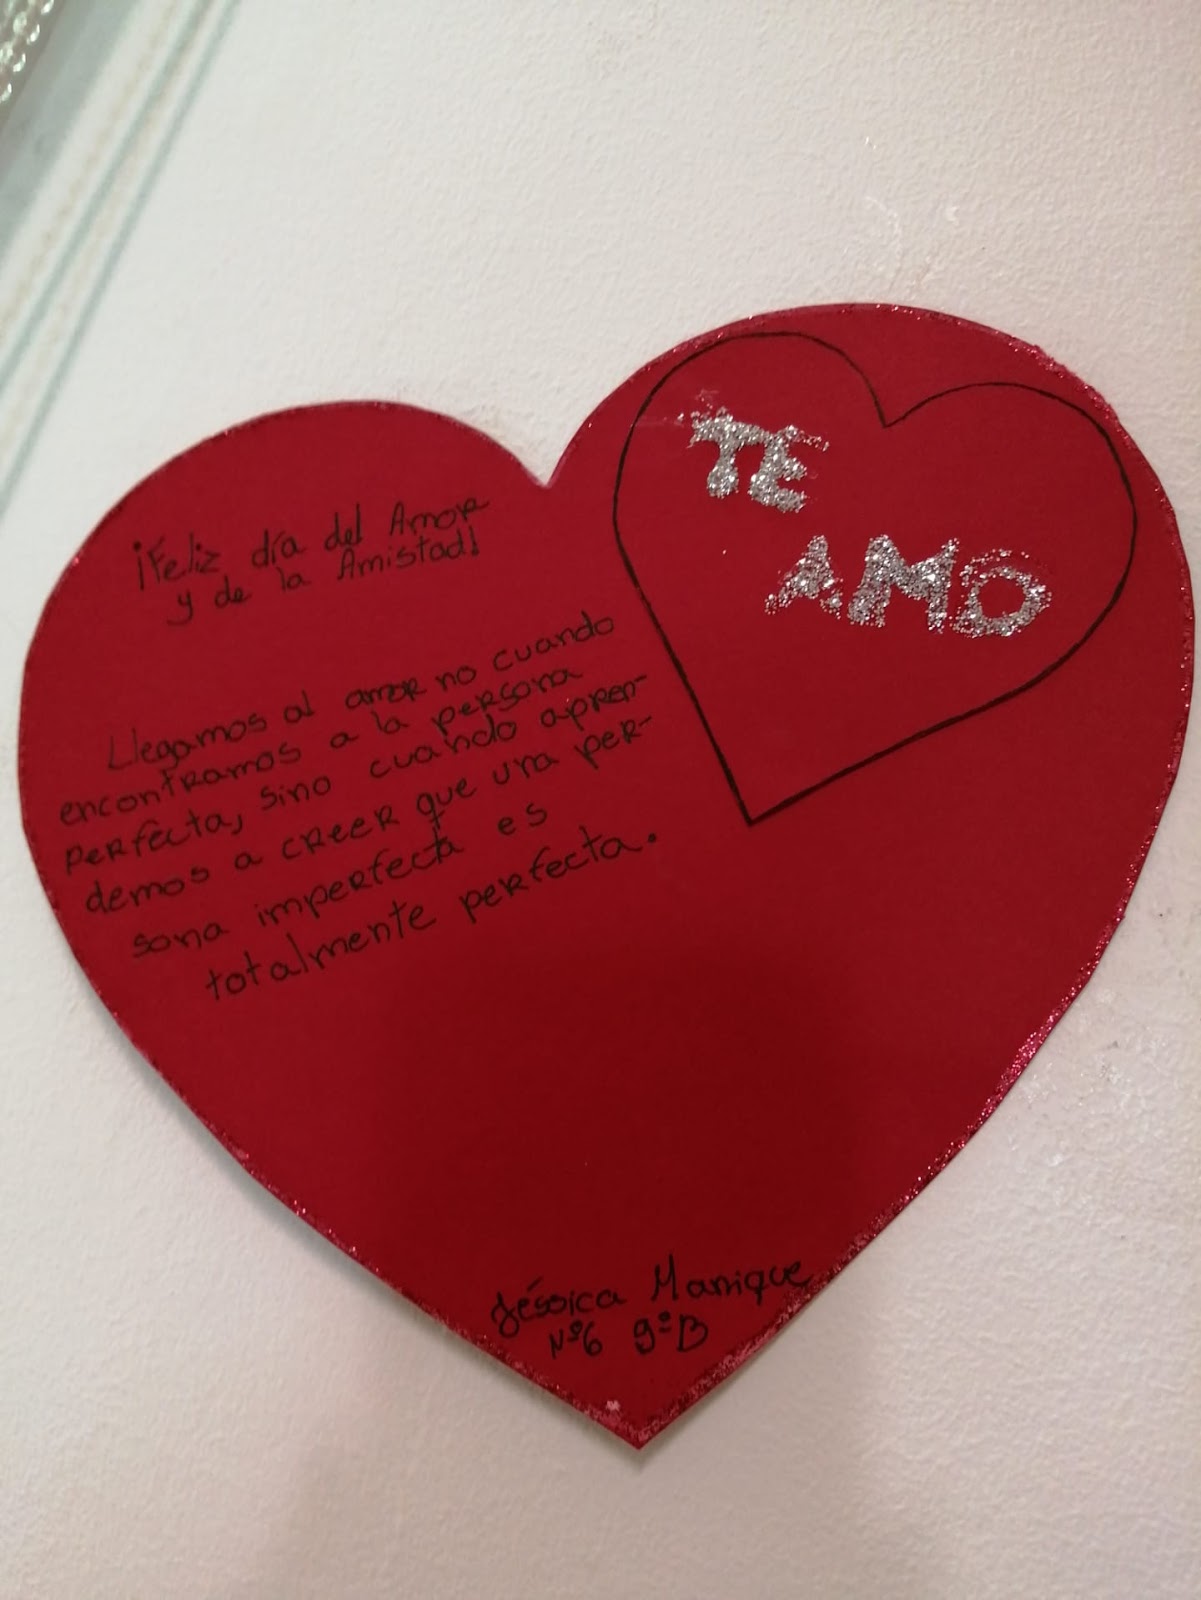 ¡Feliz día del Amor
y de la Amistad!
Llegamos al amor no cuando
encontramos a la persona
perfecta, sino cuando apren-
demos a creer que una per-
sona imperfecta es
totalmente perfecta.
TE
AMO
Jéssica Manique
Nº6 9ºB